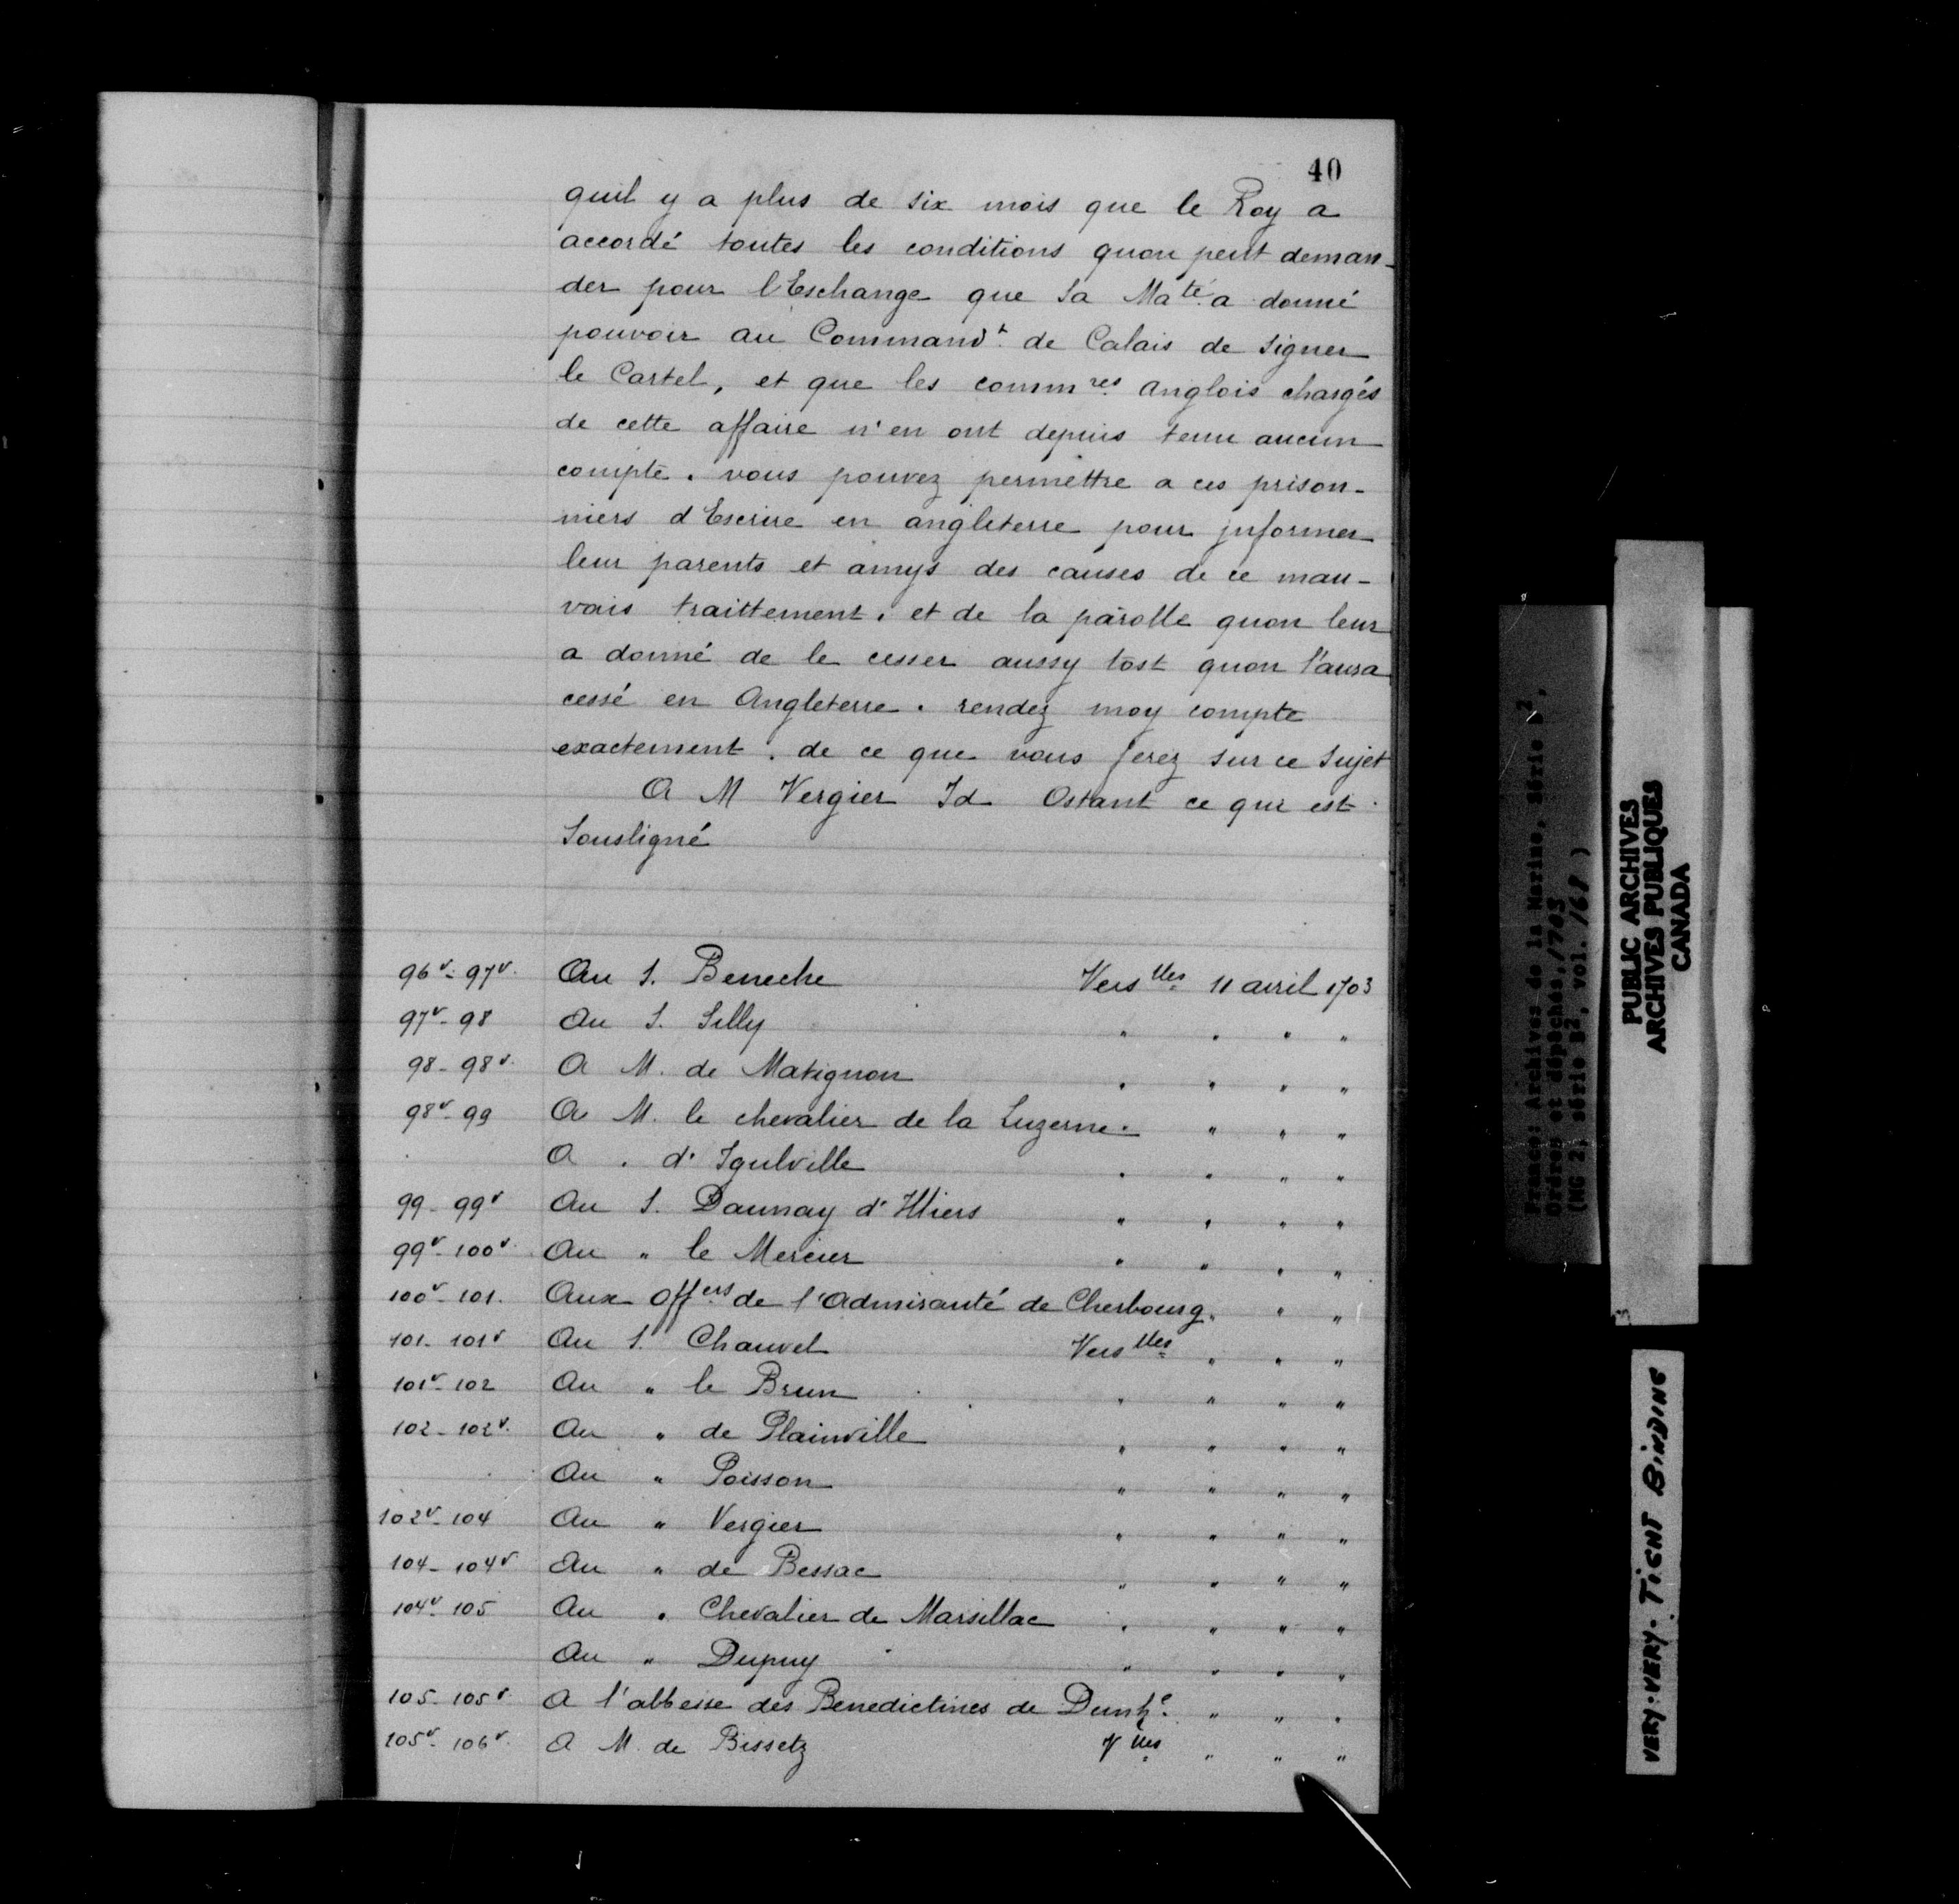 40
quil y a plus de six mois que le Roy a
accordé toutes les conditions quon peut deman-
der pour l'Eschange que Sa Maté a donné
pouvoir au Commandt de Calais de signer
le Cartel, et que les commres anglois chargés
de cette affaire n'en ont depuis tenu aucun
compte. vous pouvez permettre a ces prison-
niers d'Escrire en angleterre pour jnformer
leur parents et amys des causes de ce mau-
vais traittement, et de la parolle quon leur
a donné de le cesser aussy tost quon l'aura
cessé en Angleterre. rendez moy compte
exactement. de ce que vous ferez sur ce sujet
A M Vergier Id Ostant ce qui est
Sousligné
96v-97v. Au S. Beneche Verslles 11 avril 1703
97v-98 Au S. Silly " " " "
98-98v. A M. de Matignon " " " "
98v-99 A M. le chevalier de la Luzerne. " " "
A " d'Igulville " " " "
99-99v Au S. Daunay d'Illiers " " " "
99v-100v Au " le Mercier " " " "
100v-101. Aux Offers de l'Admirauté de Cherbourg " " "
101-101v Au S. Chauvel Verslles " " "
101v-102 Au " le Brun " " " "
102-102v. Au " de Plainville " " " "
Au " Poisson " " " "
102v-104 Au " Vergier " " " "
104-104v Au " de Bessac " " " "
104v-105 Au " Chevalier de Marsillac " " " "
Au " Dupuy " " " "
105-105v A l'abbesse des Benedictines de Dunke. " " "
105v-106v. A M. de Bissetz Vlles " " "
France: Archives de la Marine, Série B2,
Ordres et dépêches, 1703
(MG 2, série B2, vol. 168 )
PUBLIC ARCHIVES
ARCHIVES PUBLIQUES
CANADA
VERY-VERY-TIGHT BINDING